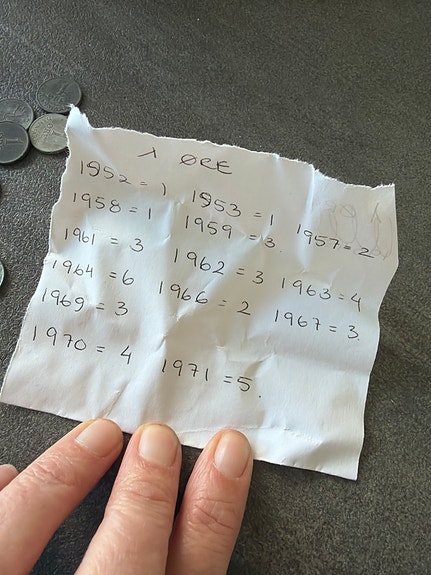 1 ØRE
1952 = 1 1953 = 1 1957 = 2
1958 = 1 1959 = 3
1961 = 3 1962 = 3 1963 = 4
1964 = 6 1966 = 2 1967 = 3
1969 = 3
1970 = 4 1971 = 5.